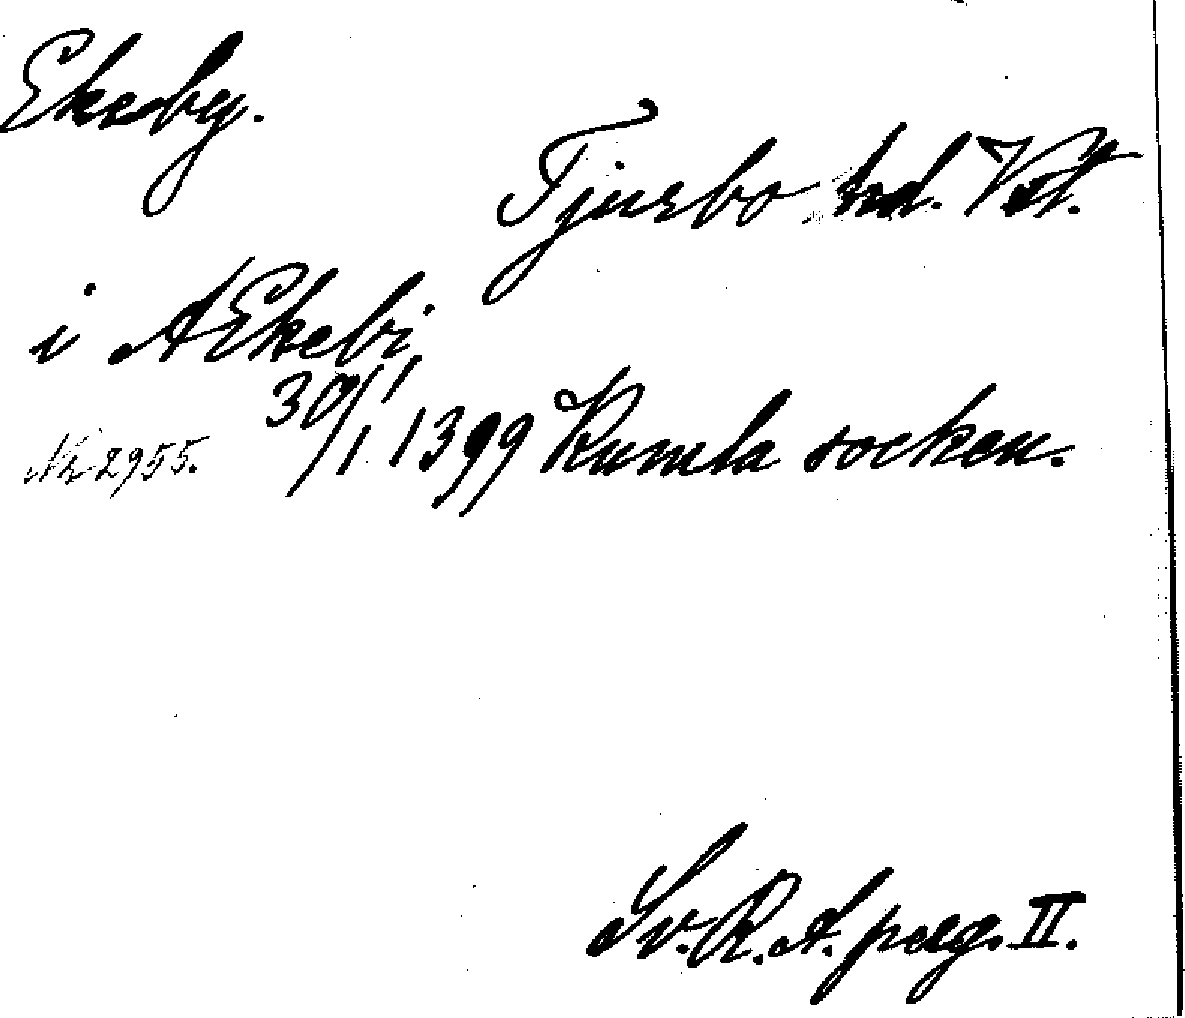 Ekeby.
Tjurbo hd. Vstl.
i Ækebi
30/1 1399 Kumla socken.
Nr 2955.
Sv. R. A. perg. II.